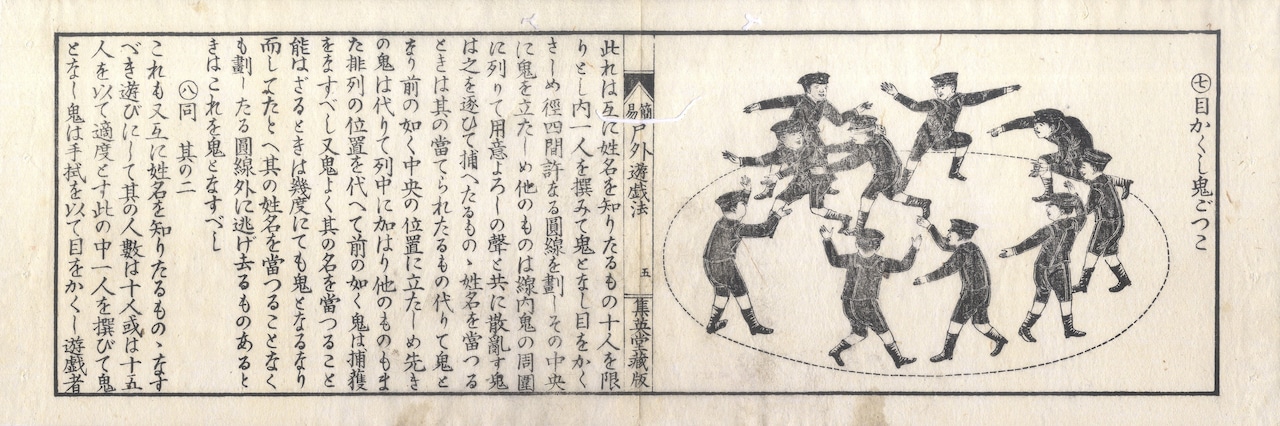 ㊆目かくし鬼ごつこ
簡易戸外遊戯法
五
集英堂藏版
此れは互に姓名を知りたるもの十人を限
りとし内一人を撰みて鬼となし目をかく
さしめ徑四間許なる圓線を劃しその中央
に鬼を立たしめ他のものは線内鬼の周圍
に列りて用意よろしの聲と共に散亂す鬼
は之を逐ひて捕へたるものゝ姓名を當つる
ときは其の當てられたるもの代りて鬼と
なり前の如く中央の位置に立たしめ先き
の鬼は代りて列中に加はり他のものもま
た排列の位置を代へて前の如く鬼は捕獲
をなすべし又鬼よく其の名を當つること
能はざるときは幾度にても鬼となるなり
而してたとへ其の姓名を當つることなく
も劃したる圓線外に逃げ去るものあると
きはこれを鬼となすべし
㊇同　其の二
これも又互に姓名を知りたるものゝなす
べき遊びにして其の人數は十人或は十五
人を以て適度とす此の中一人を撰びて鬼
となし鬼は手拭を以て目をかくし遊戯者